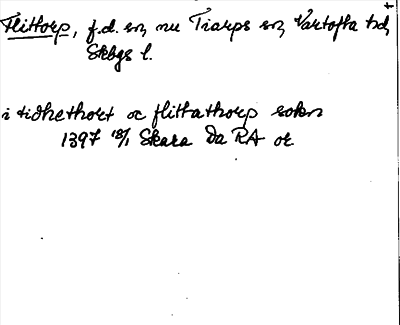 Flittorp, f.d. sn, nu Tiarps sn, Vartofta hd,
Skbgs l.
i tidhethort oc flittathorp sokn
1397 18/1 Skara Da RA or